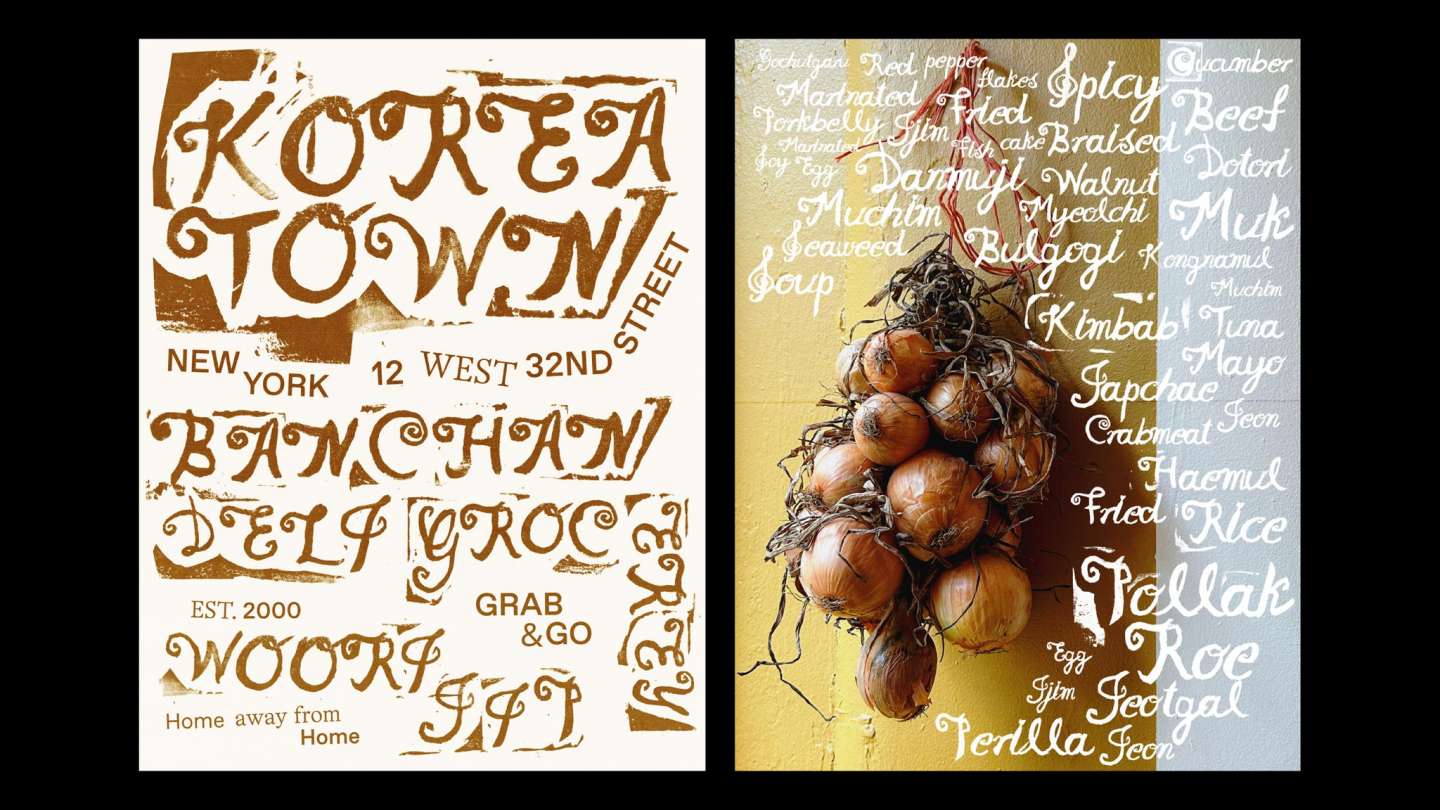 KOREA
TOWN
STREET
NEW
YORK
12 WEST 32ND
BANCHAN
DELI GROC
EREY
EST. 2000
GRAB
&GO
WOORI
JIP
Home away from
Home
Gochutgaru Red pepper
flakes Spicy
Cucumber
Marinated
Fried
Beef
Porkbelly Jjim
Fish cake Braised
Marinated
Soy Egg
Dotori
Danmuji Walnut
Muchim
Myeolchi
Muk
Seaweed
Bulgogi Kongnamul
Soup
Muchim
Kimbab Tuna
Mayo
Japchae
Jeon
Crabmeat
Haemul
Fried Rice
Pollak
Roe
Egg
Jjim Jeotgal
Perilla Jeon